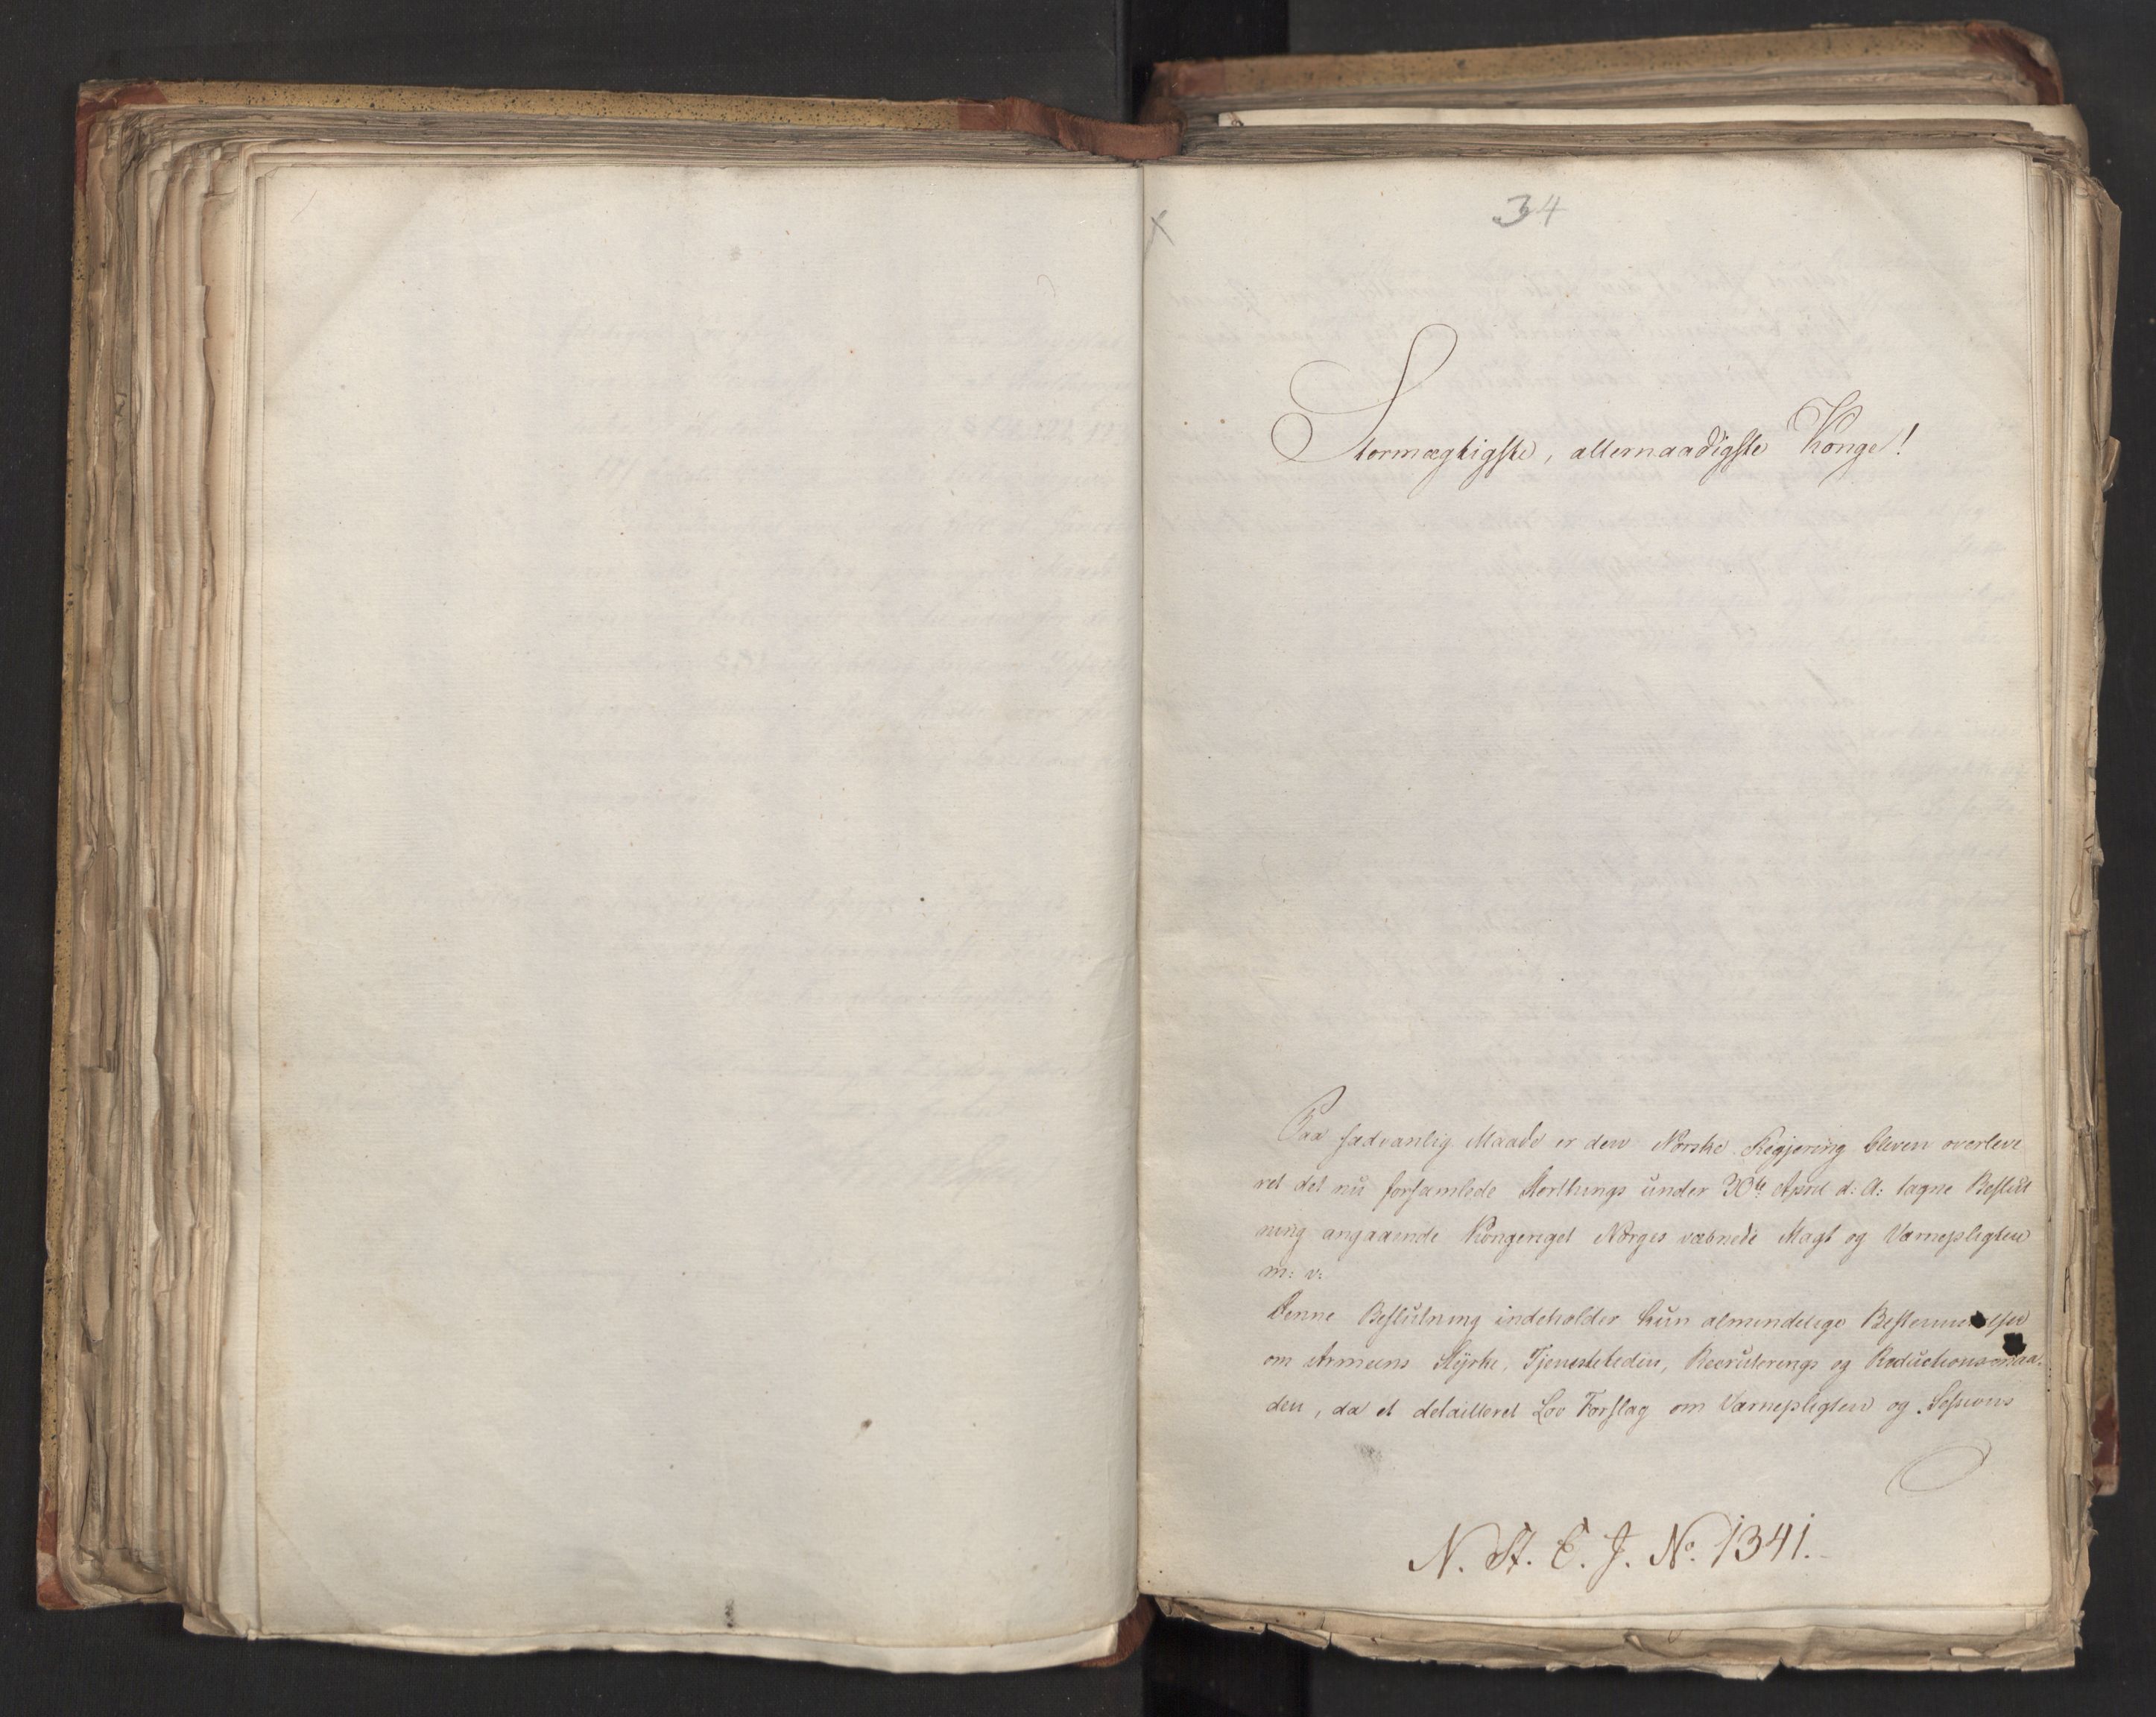 34
Stormægtigste, allernaadigste Konge!
Paa sædvanlig Maade er den Norske Regjering bleven overleve
ret det nu forsamlede Storthings under 30te April d: A: tagne Beslut
ning angaaende Kongeriget Norges væbnede Magt og Værnepligten
m: v:
Denne Beslutning indeholder kun almindelige Bestemmelser
om Armeens Styrke, Tjenestetiden, Recruterings og Reductionsmaa-
den, da et detailleret Lov Forslag om Værnepligten og Sessions
N. St. E. J. No. 1341.